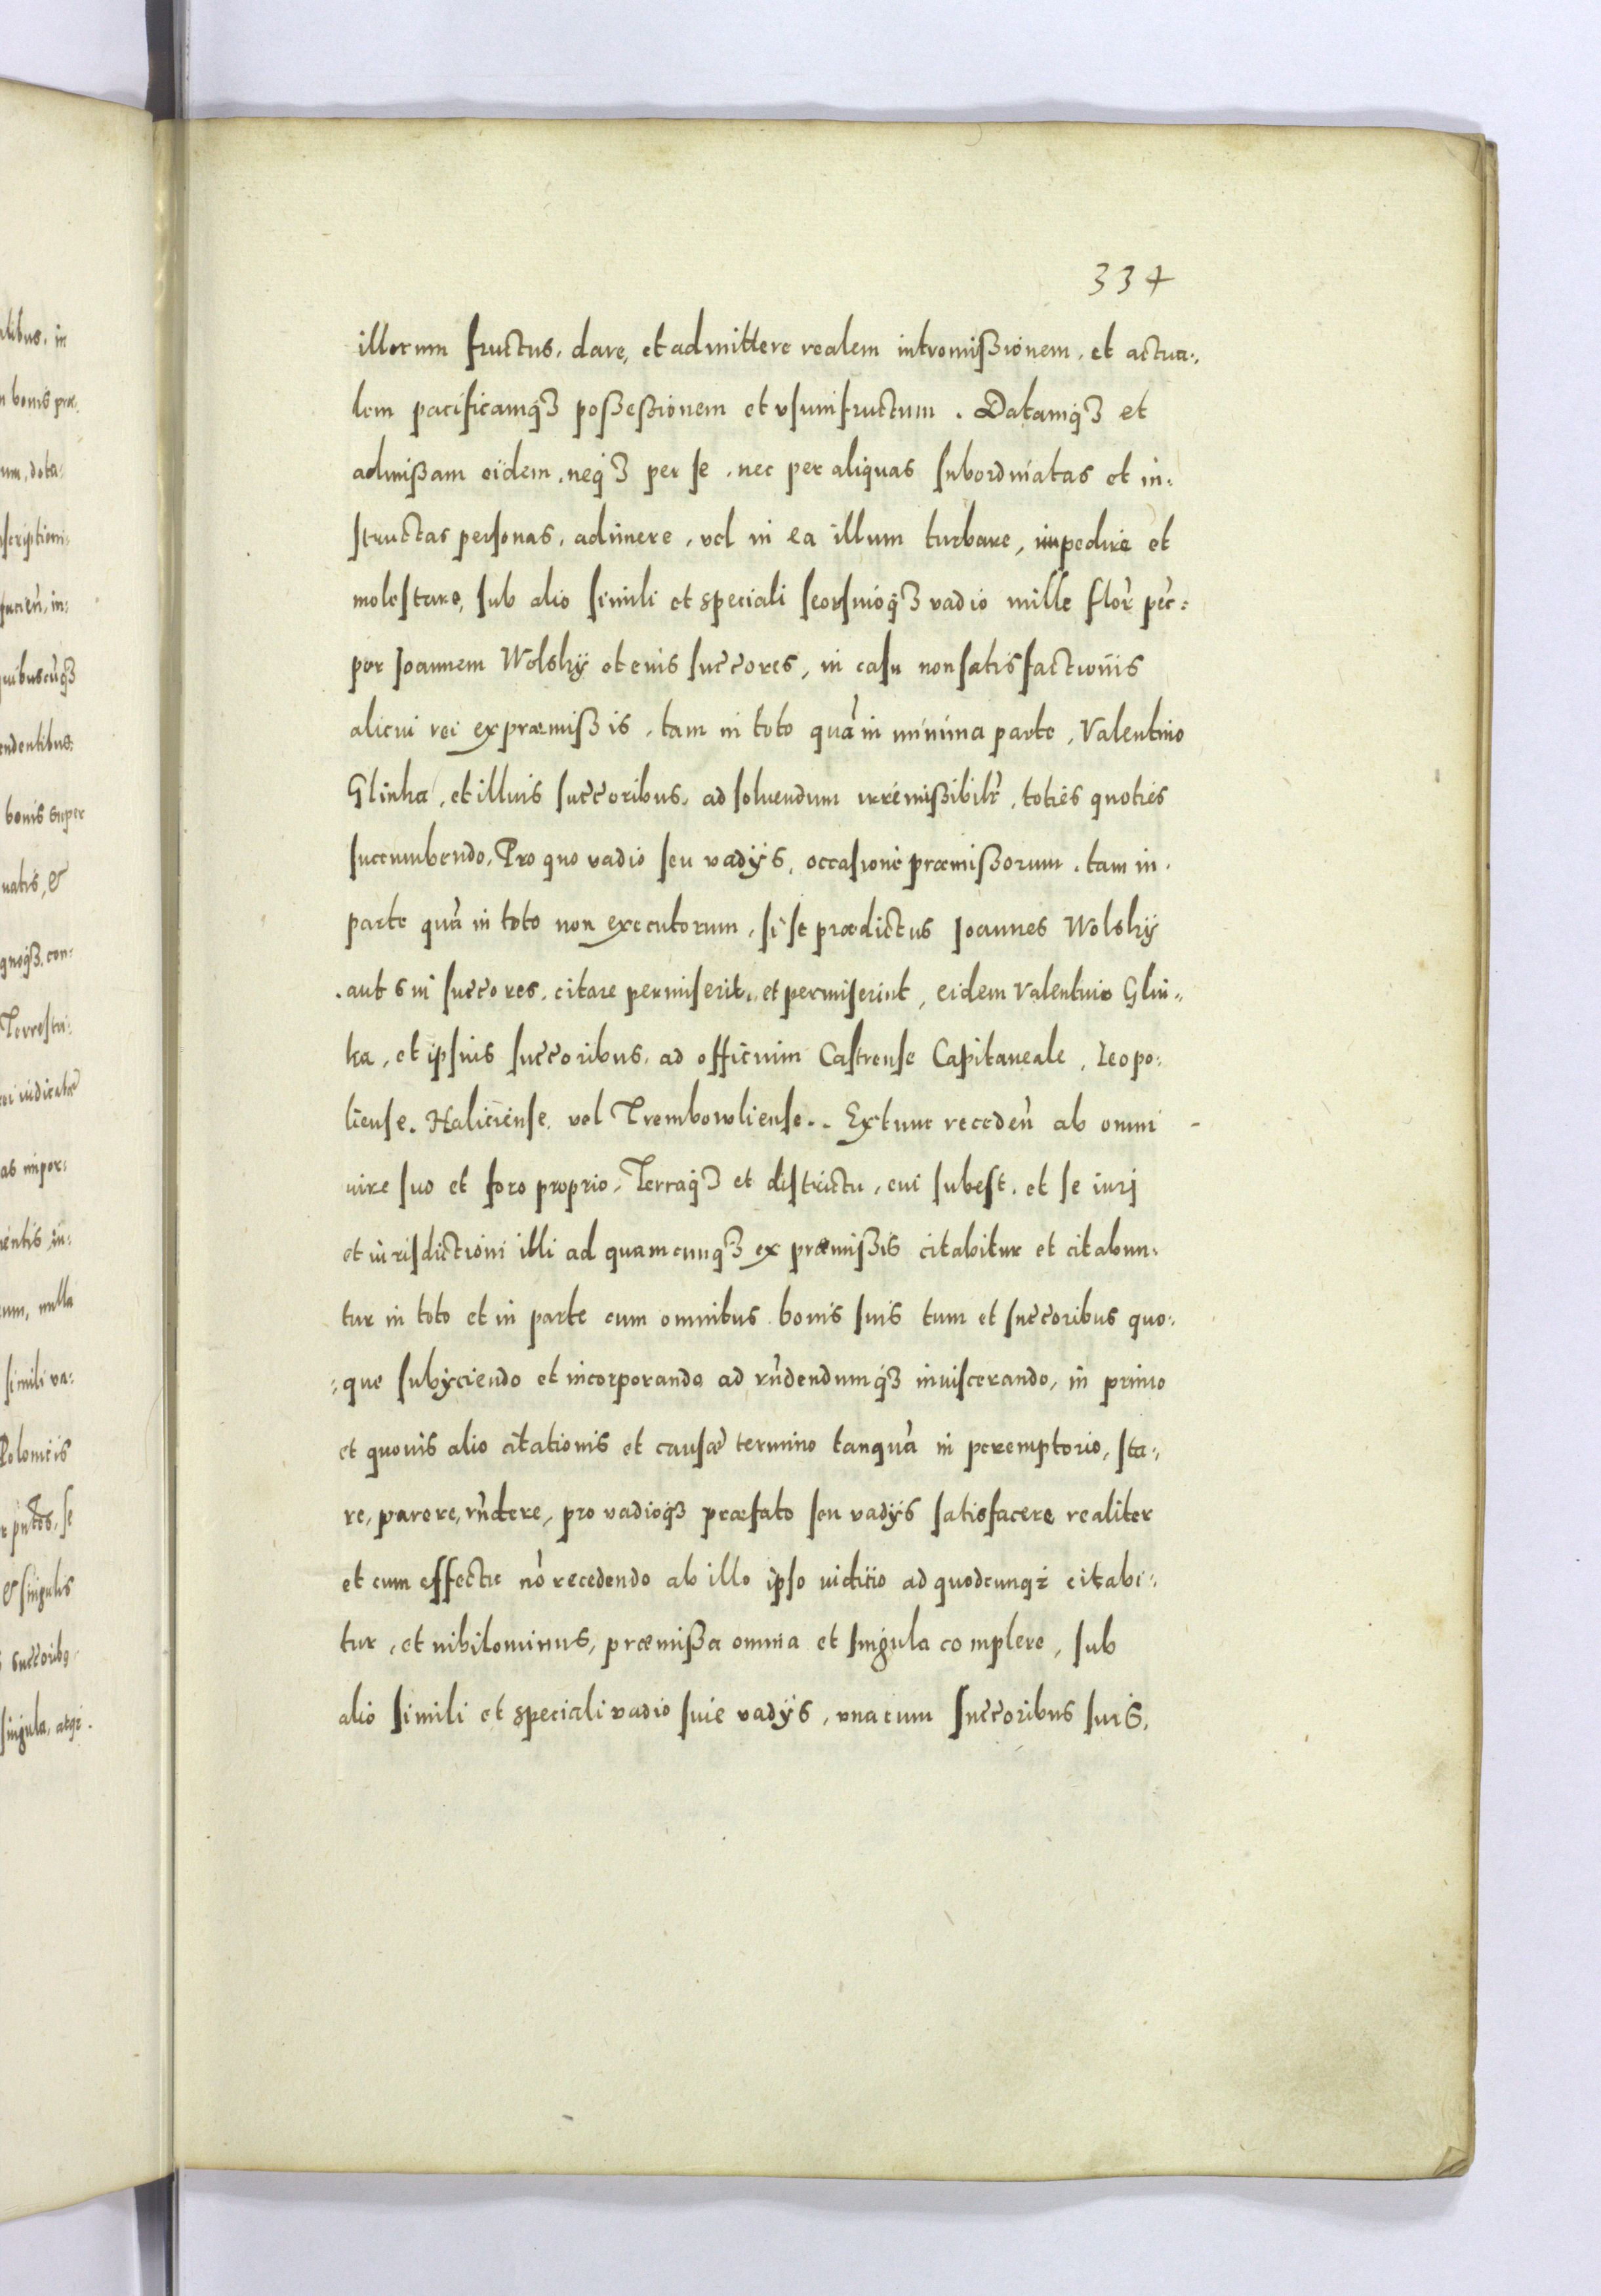 334
illorum fructus, dare, et admittere realem intromißionem, et actua-
lem pacificamq3 poßeßionem et vsumfructum. Datamq3 et
admißam eidem, neq3 per se, nec per aliquas subordinatas et in-
structas personas, adimere, vel in ea illum turbare, impedire et
molestare, sub alio simili et speciali seorsivoq3 vadio mille flor̃ per-
per Joannem Wolsky et eius succores, in casu non satisfactionis
alicui rei ex præmißis, tam in toto quã in minima parte, Valentino
Glinka, et illius succoribus, ad soluendum irremißibilr̃, toties quoties
succumbendo, Pro quo vadio seu vadÿs, occasione præmißorum, tam in
parte quã in toto non executorum, si se prædictus Joannes Wolsky
aut sui succores, citare permiserit, et permiserint, eidem Valentino Glin-
ka, et ipsius succoribus, ad officium Castrense Capitaneale, Leopo-
liense, Haliciense, vel Trembowliense. Extunc recedeñ ab omni
iure suo et foro proprio, Terraq3 et districtu, cui subest, et se iurj
et iurisdictioni illi ad quamcunq3 ex præmißis citabitur et citabun-
tur in toto et in parte cum omnibus bonis suis tum et succoribus quo-
que subÿciendo et incorporando ad rñdendumq3 inuiscerando, in primo
et quouis alio citationis et causæ termino tanquã in peremptorio, sta-
re, parere, rñdere, pro vadioq3 præfato seu vadÿs satisfacere realiter
et cum effectu nõ recedendo ab illo ipso iuditio ad quodcunq3 citabi-
tur, et nihilominus, præmißa omnia et singula complere, sub
alio simili et speciali vadio siue vadÿs, vna cum succoribus suis,